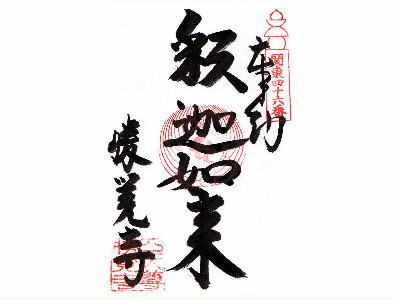 関東四十六番
奉納
釈迦如来
覚寺